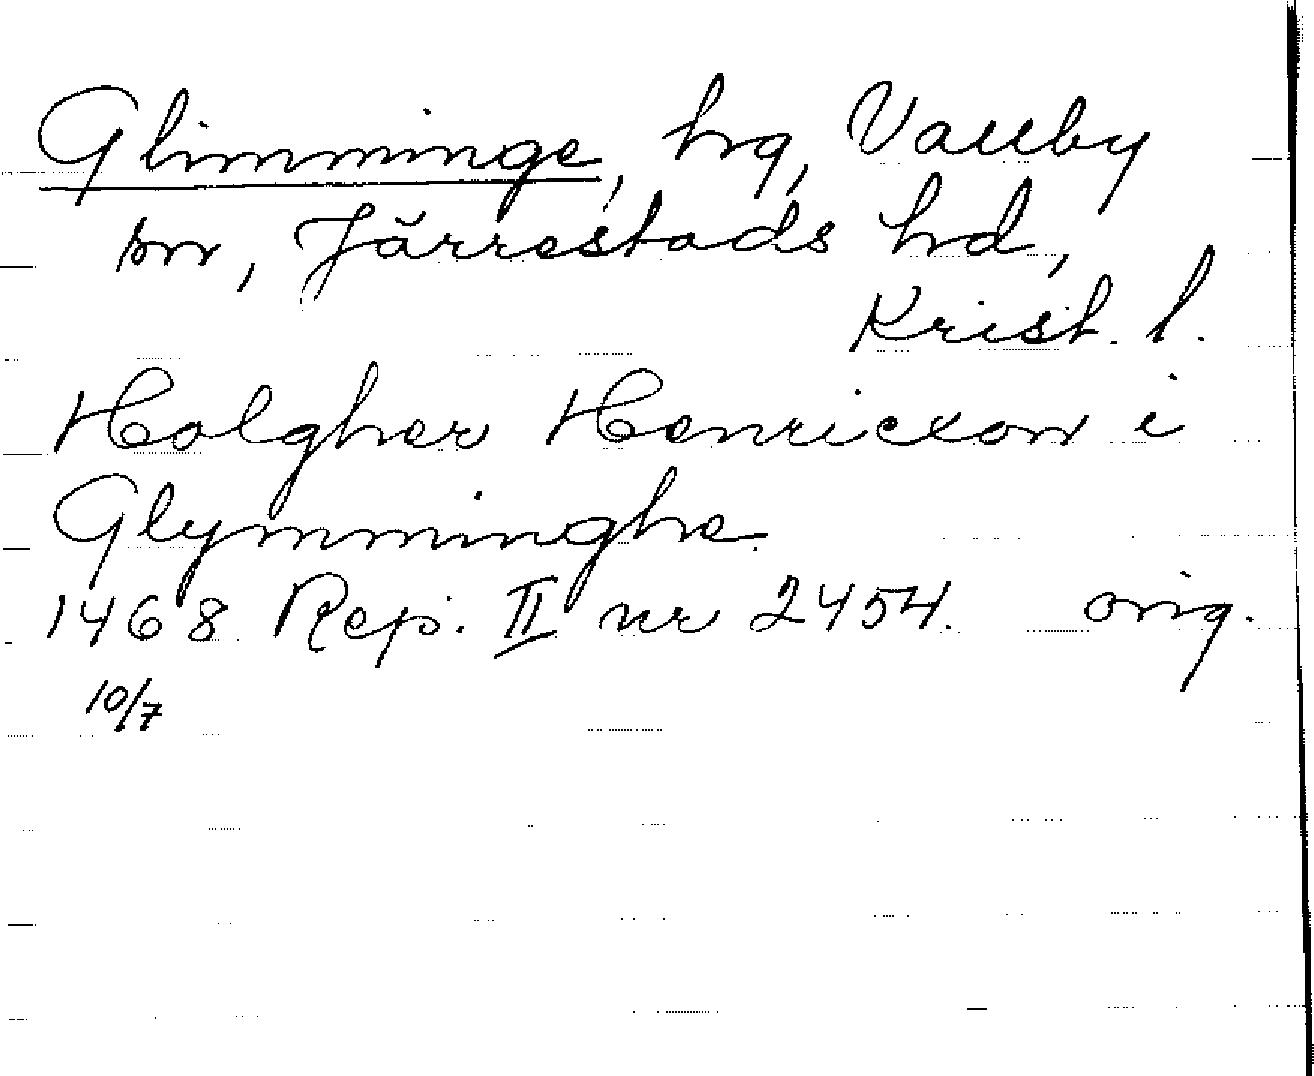 Glimminge, hg, Vallby
sn, Järrestads hd,
Krist. l.
Holgher Henricxon i
Glymminghe
1468 10/7 Rep. II nr 2454. orig.